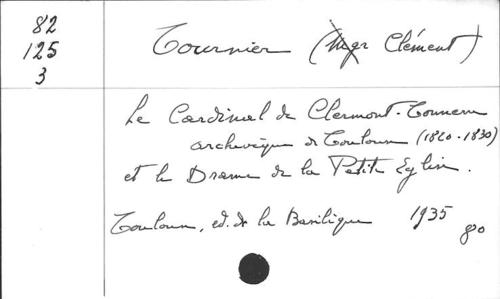 82
125
3
Tournier (Mgr Clément)
Le Cardinal de Clermont-Tonnerre
archevêque de Toulouse (1820-1830)
et le Drame de la Petite Eglise.
Toulouse, ed. de la Basilique 1935
80